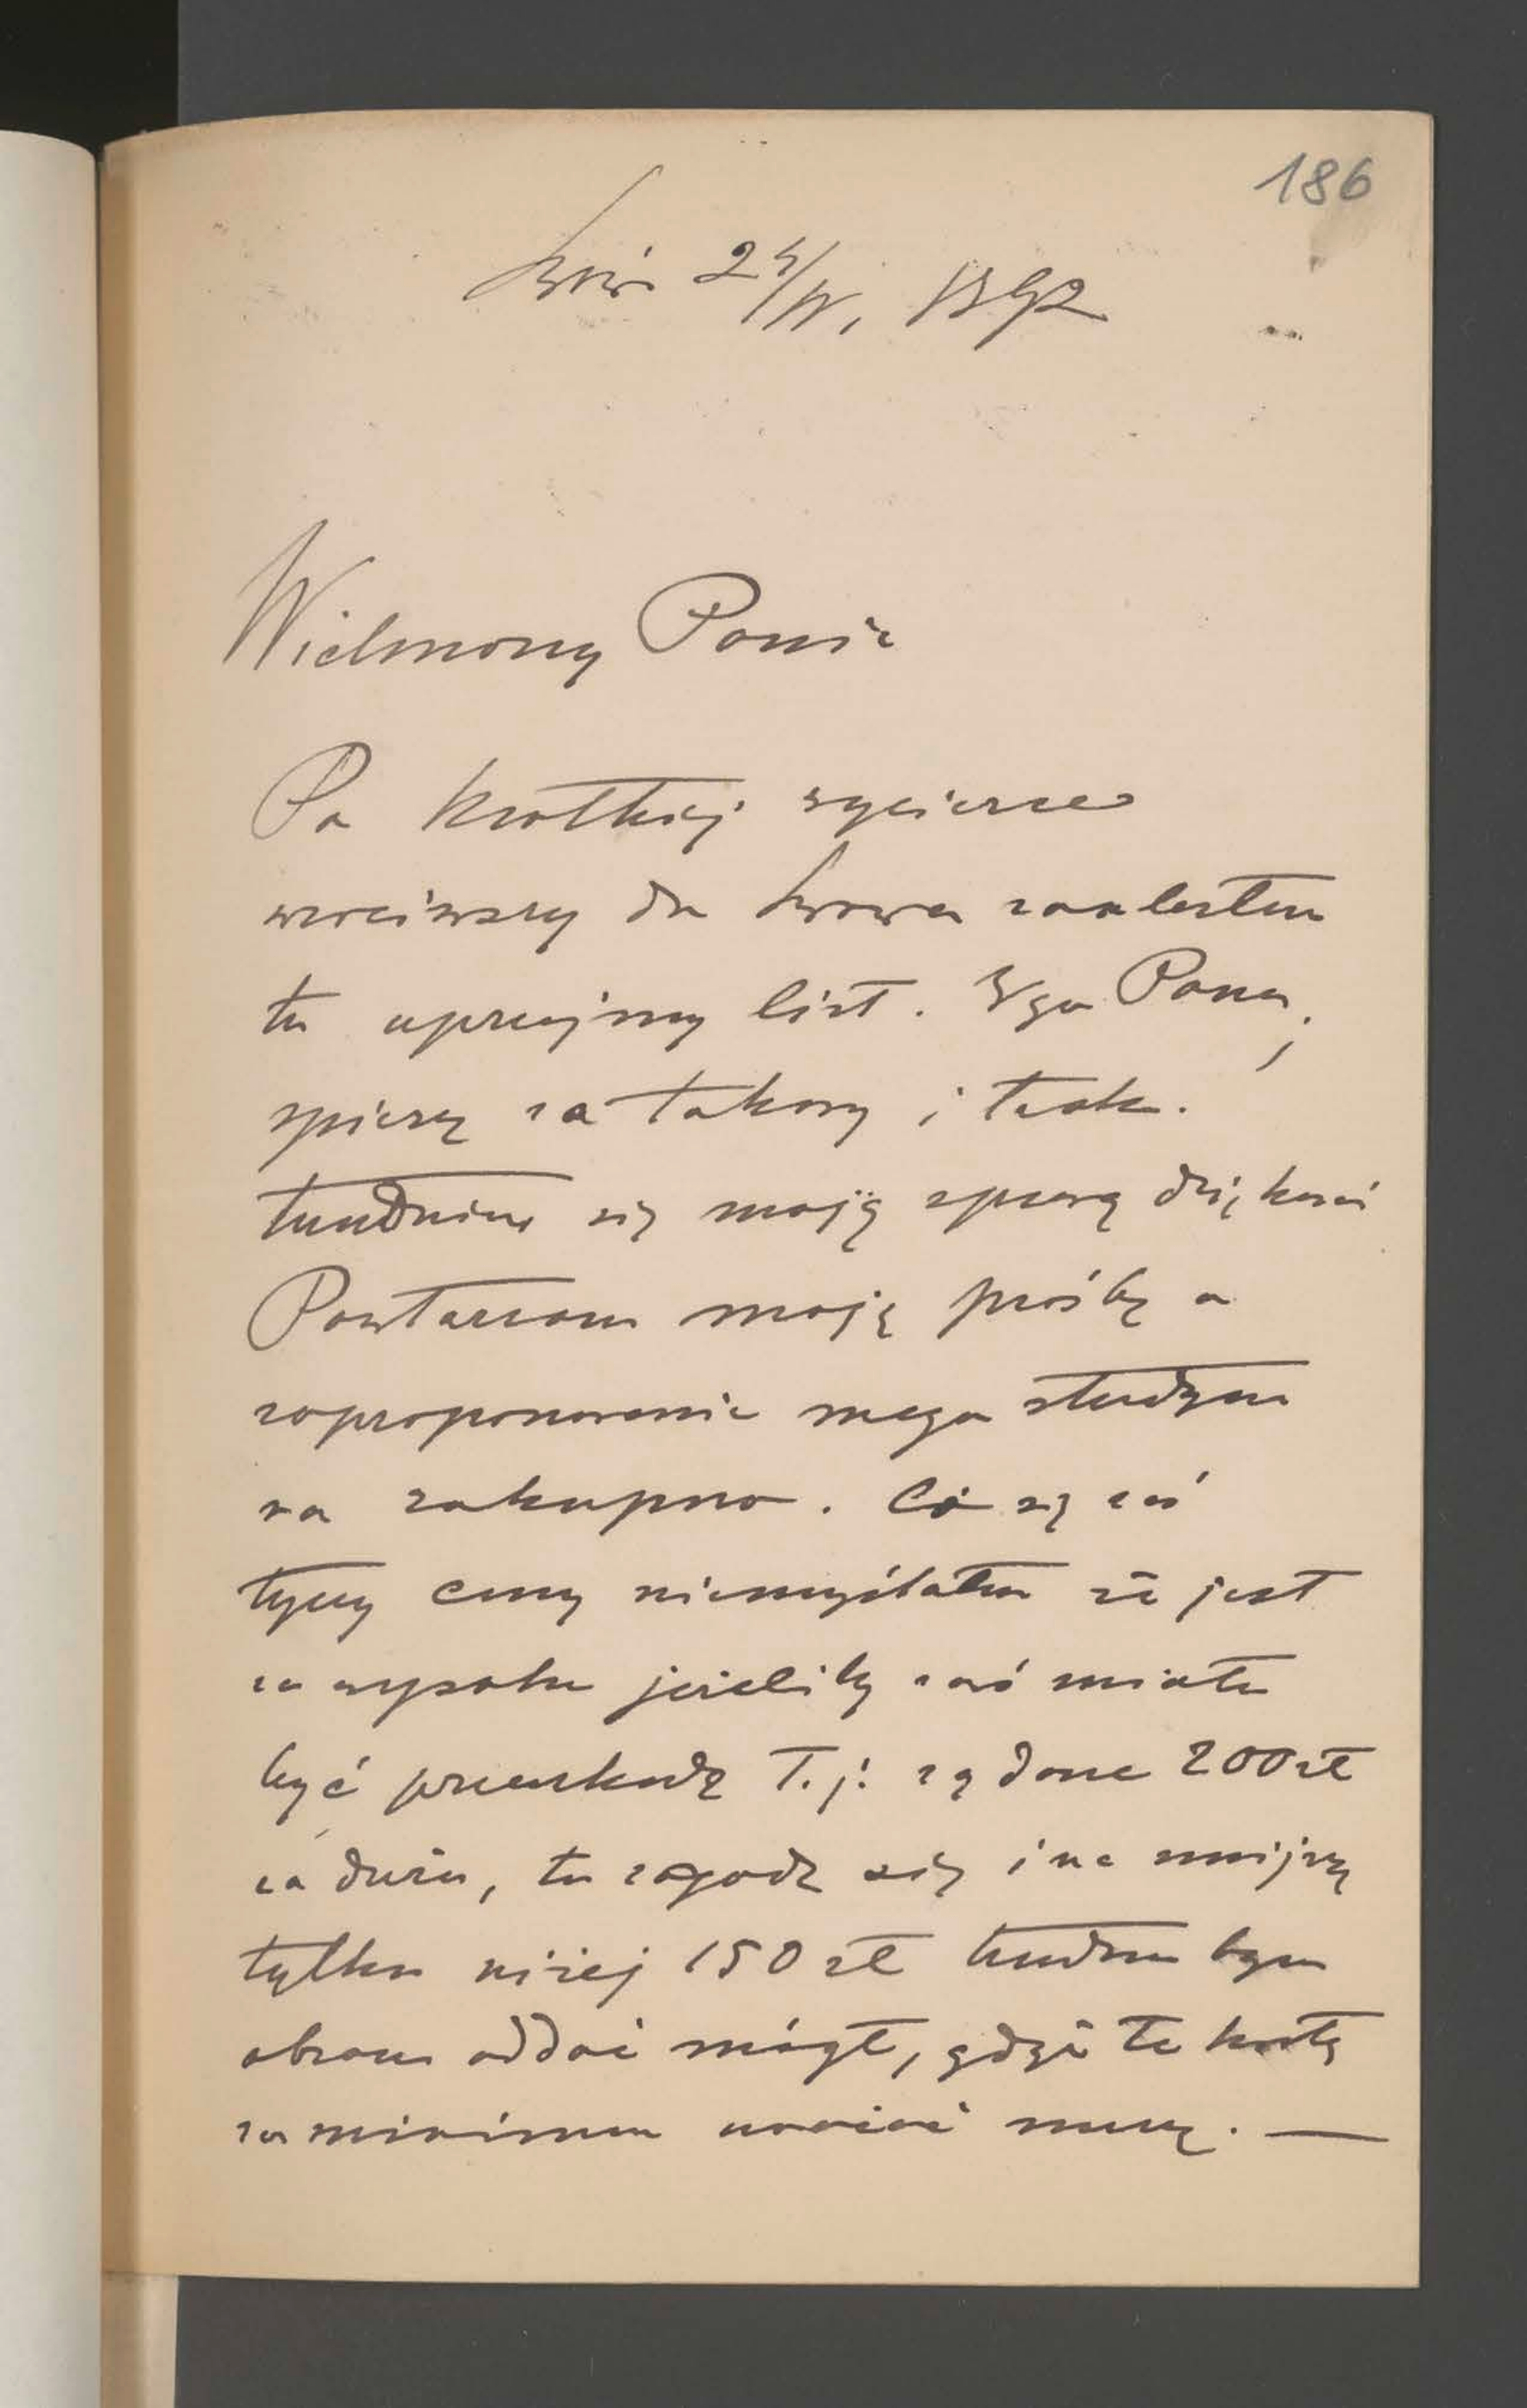 186
Lwów 24/IV. 1892
Wielmożny Panie
Po krótkiej wycieczce
wróciwszy do Lwowa zastałem
tu uprzejmy list. Wgo Pana,
spieszę za takowy i łask.
trudnienie się moją sprawą dziękować
Powtarzam moją prośbę o
zaproponowanie mego studyum
na zakupno. Co się zaś
tyczy ceny niemyślałem że jest
za wysoka jeżeliby zaś miała
być przeszkodą T. j. żądane 200 zł
za dużo, to zgodzę się i na mniejszą
tylko niżej 150 zł trudno bym
obraz oddać mógł, gdyż tę kwotę
za minimum uważać muszę. —